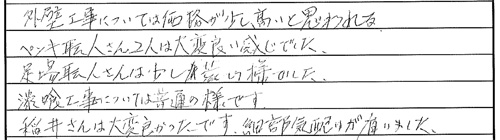 外壁工事については価格が少し高いと思われる
ペンキ職人さん2人は大変良い感じでした、
足場職人さんは少し 様でした、
漆喰工事については普通の様です
稲井さんは大変良かったです、細部気配りが有いました、